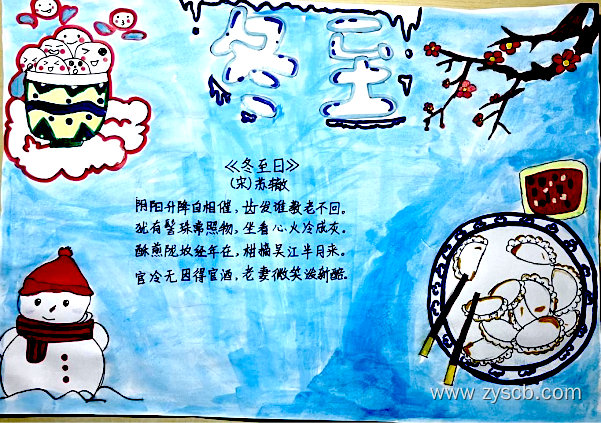 冬至
《冬至日》
(宋)苏辙
阴阳升降自相催,齿发谁教老不回。
犹有髻珠常照物,坐看心火冷成灰。
酥煎陇坂经年在,柑摘吴江半月来。
官冷无因得官酒,老妻微笑泼新醅。
www.zyscb.com